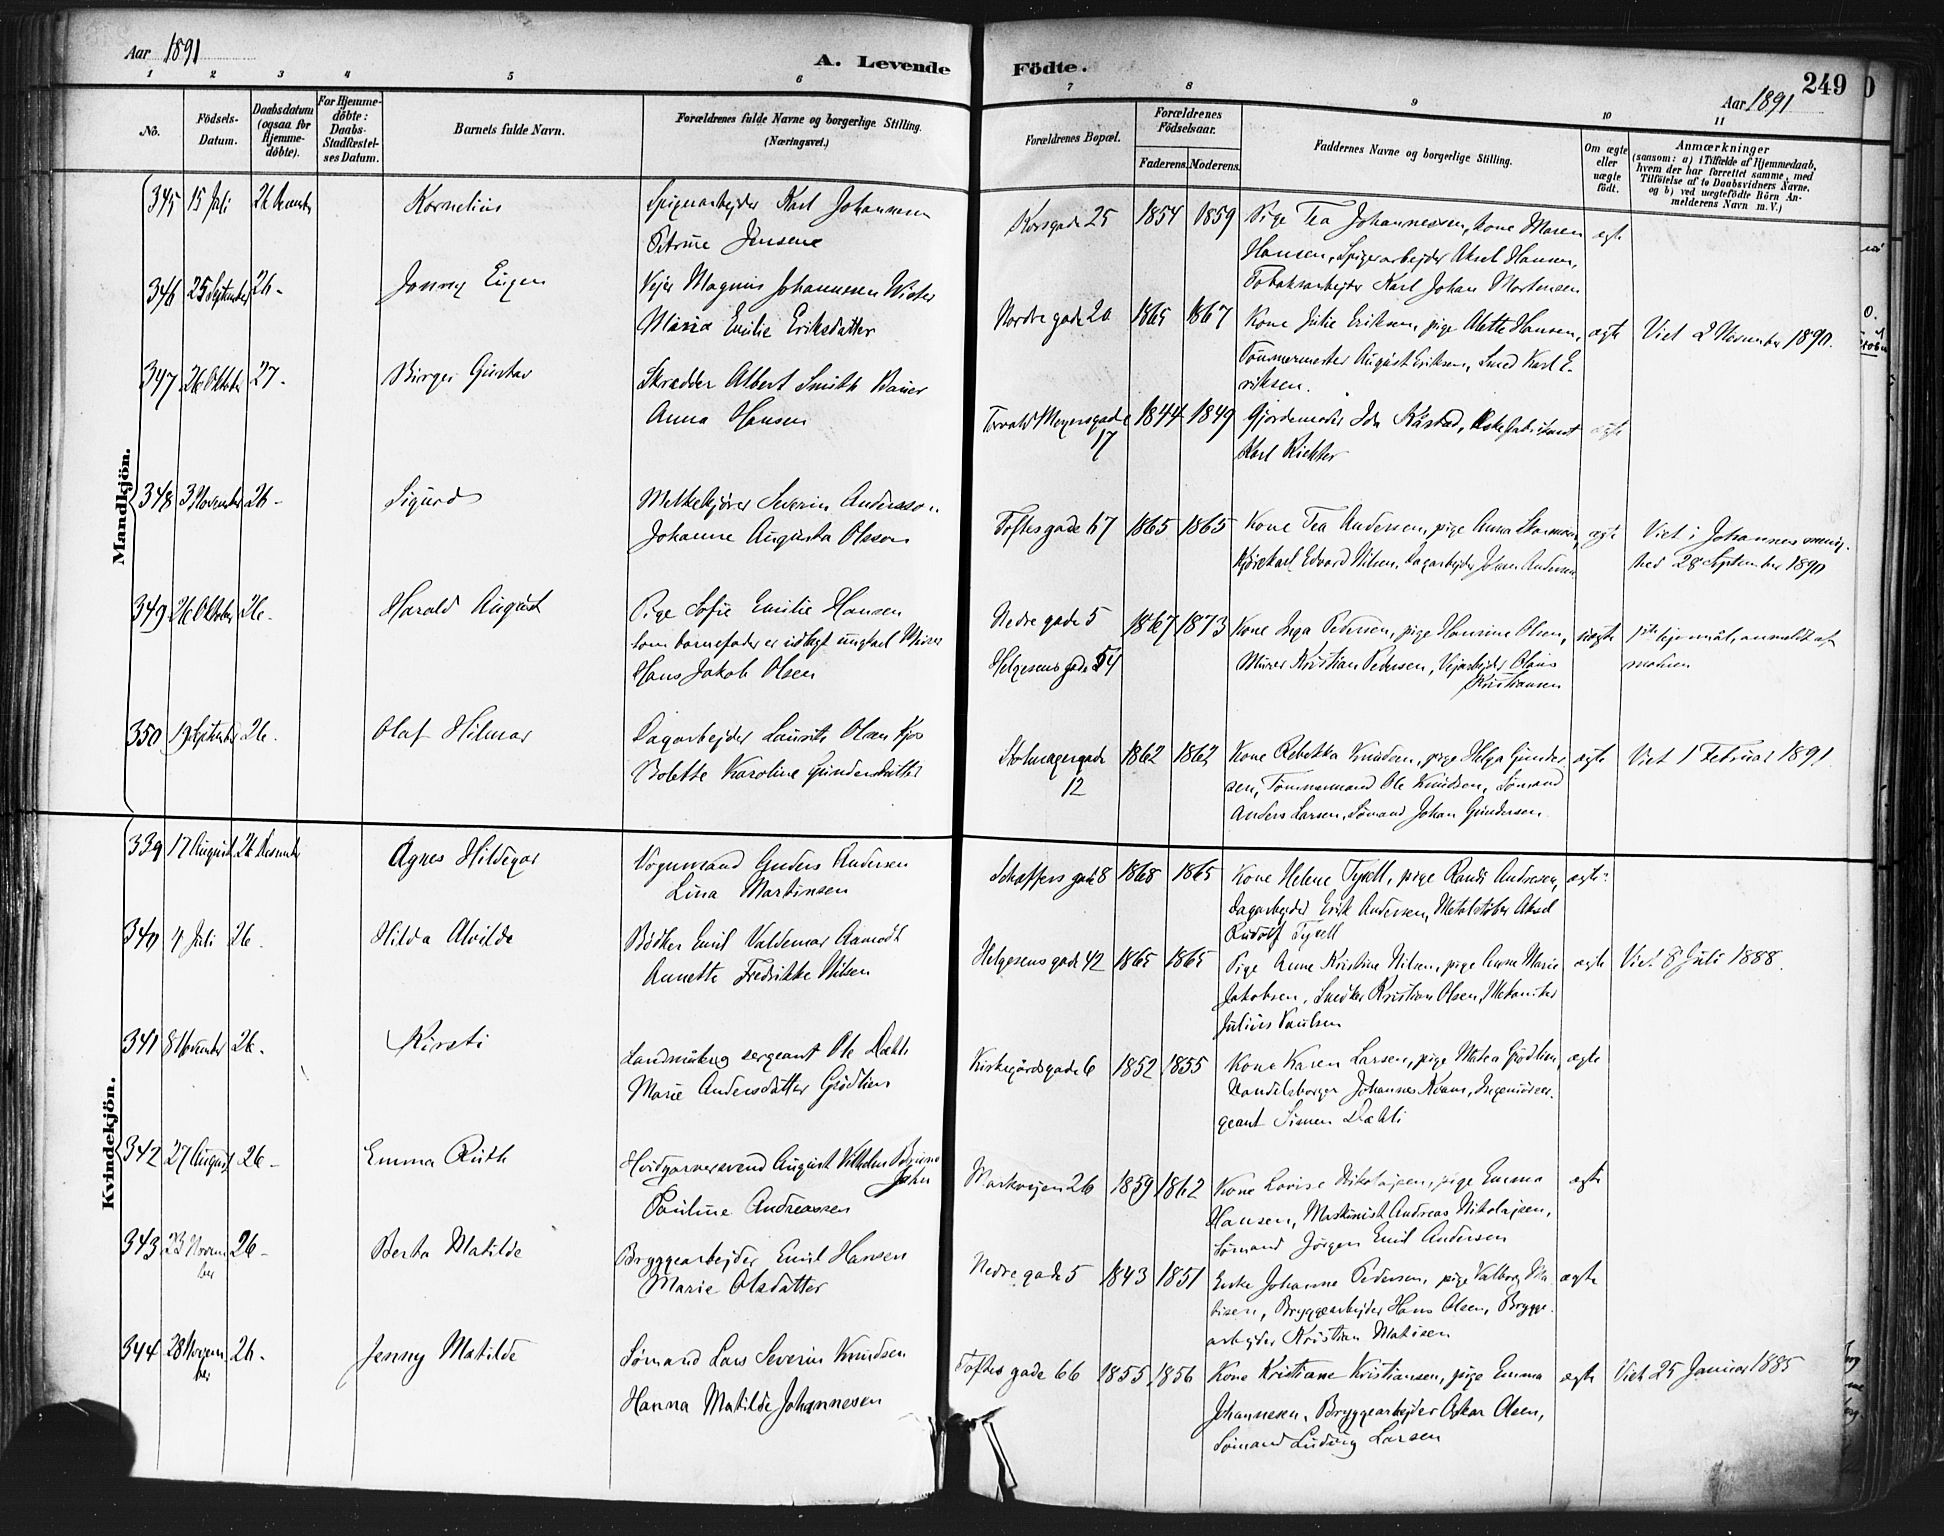 Aar 1891
A. Levende
Födte.
249
Aar 1891
1 2 3 4 5 6 7 8 9 10 11
No.
Födsels-
Datum.
Daabsdatum
(ogsaa for
Hjemme-
døbte).
For Hjemme-
døbte:
Daabs-
Stadfæstel-
ses Datum.
Barnets fulde Navn.
Forældrenes fulde Navne og borgerlige Stilling.
(Næringsvei.)
Forældrenes Bopæl.
Forældrenes
Födselsaar.
Faderens. Moderens.
Faddernes Navne og borgerlige Stilling.
Om ægte
eller
uægte
født.
Anmærkninger
(saasom: a) i Tilfælde af Hjemmedaab,
hvem der har forrettet samme, med
Tilföielse af to Daabsvidners Navne.
og b) ved uægtefödte Börn An-
melderens Navn m. V.)
Mandkjön.
345 15 Juli 26 Kornelius Spigerarbejder Karl Johannesen
Petrine Jensene
Korsgade 25 1854 1859 Pige Tea Johannessen, kone Maren ægte
Hansen, Spigerarbejder Aksel Hansen,
Tobaksarbejder Karl Johan Mortensen
346 25 September 26 - Jonny Eugen Vejer Magnus Johannesen
Maria Emilie Eriksdatter
Nordre gade 20 1865 1867 Kone Julie Eriksen, pige Alette Hansen, ægte Viet 2 November 1890.
Tömmermester August Eriksen, Smed Karl E-
riksen.
347 26 Oktober 27 - Birger Gustav Skrædder Albert Smith
Anna Hansen
Torvald Meyersgade 1844 1849 Gjordemoder Ida ægte
17
Karl Richter
348 3 November 26 - Sigurd Melkekjører Severin Andersson
Johanne Augusta Olsson
Toftesgade 67 1865 1865 Kone Tea Andersen, pige Anna ægte Viet i Johannes menig-
Kjørekarl Edvard Nilsen, Dagarbejder Johan Andersen
hed 28 September 1890
349 26 Oktober 26 - Harald August Pige Sofie Emilie Hansen
som barnefader er udlagt ungkarl Murer
Hans Jakob Olsen
Nedre gade 5 1867 1873 Kone Inga Pedersen, pige Hansine Olsen, uægte 1ste lejermål, anmeldt af
Helgesens gade 54 Murer Kristian Pedersen, Vejarbejder Olaus
moderen
Kristiansen
350 19 September 26 - Olaf Hilmar Dagarbejder Laurits Olsen
Bolette Karoline Gundersdatter
Stolmagergade 1862 1862 Kone Rebekka Knudsen, pige Helga Gunder- ægte Viet 1 Februar 1891
12
sen, Tømmermand Ole Knudsen, Sømand
Anders Larsen, Sømand Johan Gundersen.
Kvindekjön.
339 17 August 26 Desember Agnes Hildegar Vognmand Anders Andersen
Lina Martinsen
Schaffers gade 8 1868 1865 Kone Helene pige Randi Andresen, ægte
Dagarbejder Erik Andersen, Metalstøber Aksel
Rudolf
340 4 Juli 26 - Hilda Alvilde Bødker Emil Valdemar Aamodt
Annette Fredrikke Nilsen
Helgesens gade 42 1865 1865 Pige Anne Kristine Nilsen, pige Anna Marie ægte Viet 8 Juli 1888.
Jakobsen, Snedker Kristian Olsen, Mekaniker
Julius Paulsen
341 8 November 26 - Kirsti sergeant Ole Dæhli
Marie Andersdatter Grødlien
Kirkegårdsgade 6 1852 1855 Kone Karen Larsen, pige Matea Grødlien, ægte
Handelsborger Johannes Kvam,
geant Simen Dæhli
342 27 August 26 - Emma Ruth Hvidgarversvend August Vilhelm
Pauline Andreassen
Markvejen 26 1859 1862 Kone Lovise Nikolajsen, pige Emma ægte
Hansen, Maskinist Andreas Nikolajsen,
Sømand Jørgen Emil Andersen
343 23 Novem- 26 - Berta Matilde Bryggearbejder Emil Hansen
ber
Marie Olsdatter
Nedre gade 5 1843 1851 Enke Johanne Pedersen, pige Valborg Ma- ægte
tisen, Bryggearbejder Hans Olsen, Brygge-
arbejder Kristian Matisen
344 28 Novem- 26 - Jenny Matilde Sømand Lars Severin Knudsen
ber
Hanna Matilde Johannesen
Toftes gade 66 1855 1856 Kone Kristiane Kristiansen, pige Emma ægte Viet 25 Januar 1885
Johannesen, Bryggearbejder Oskar Olsen,
Sømand Ludvig Larsen